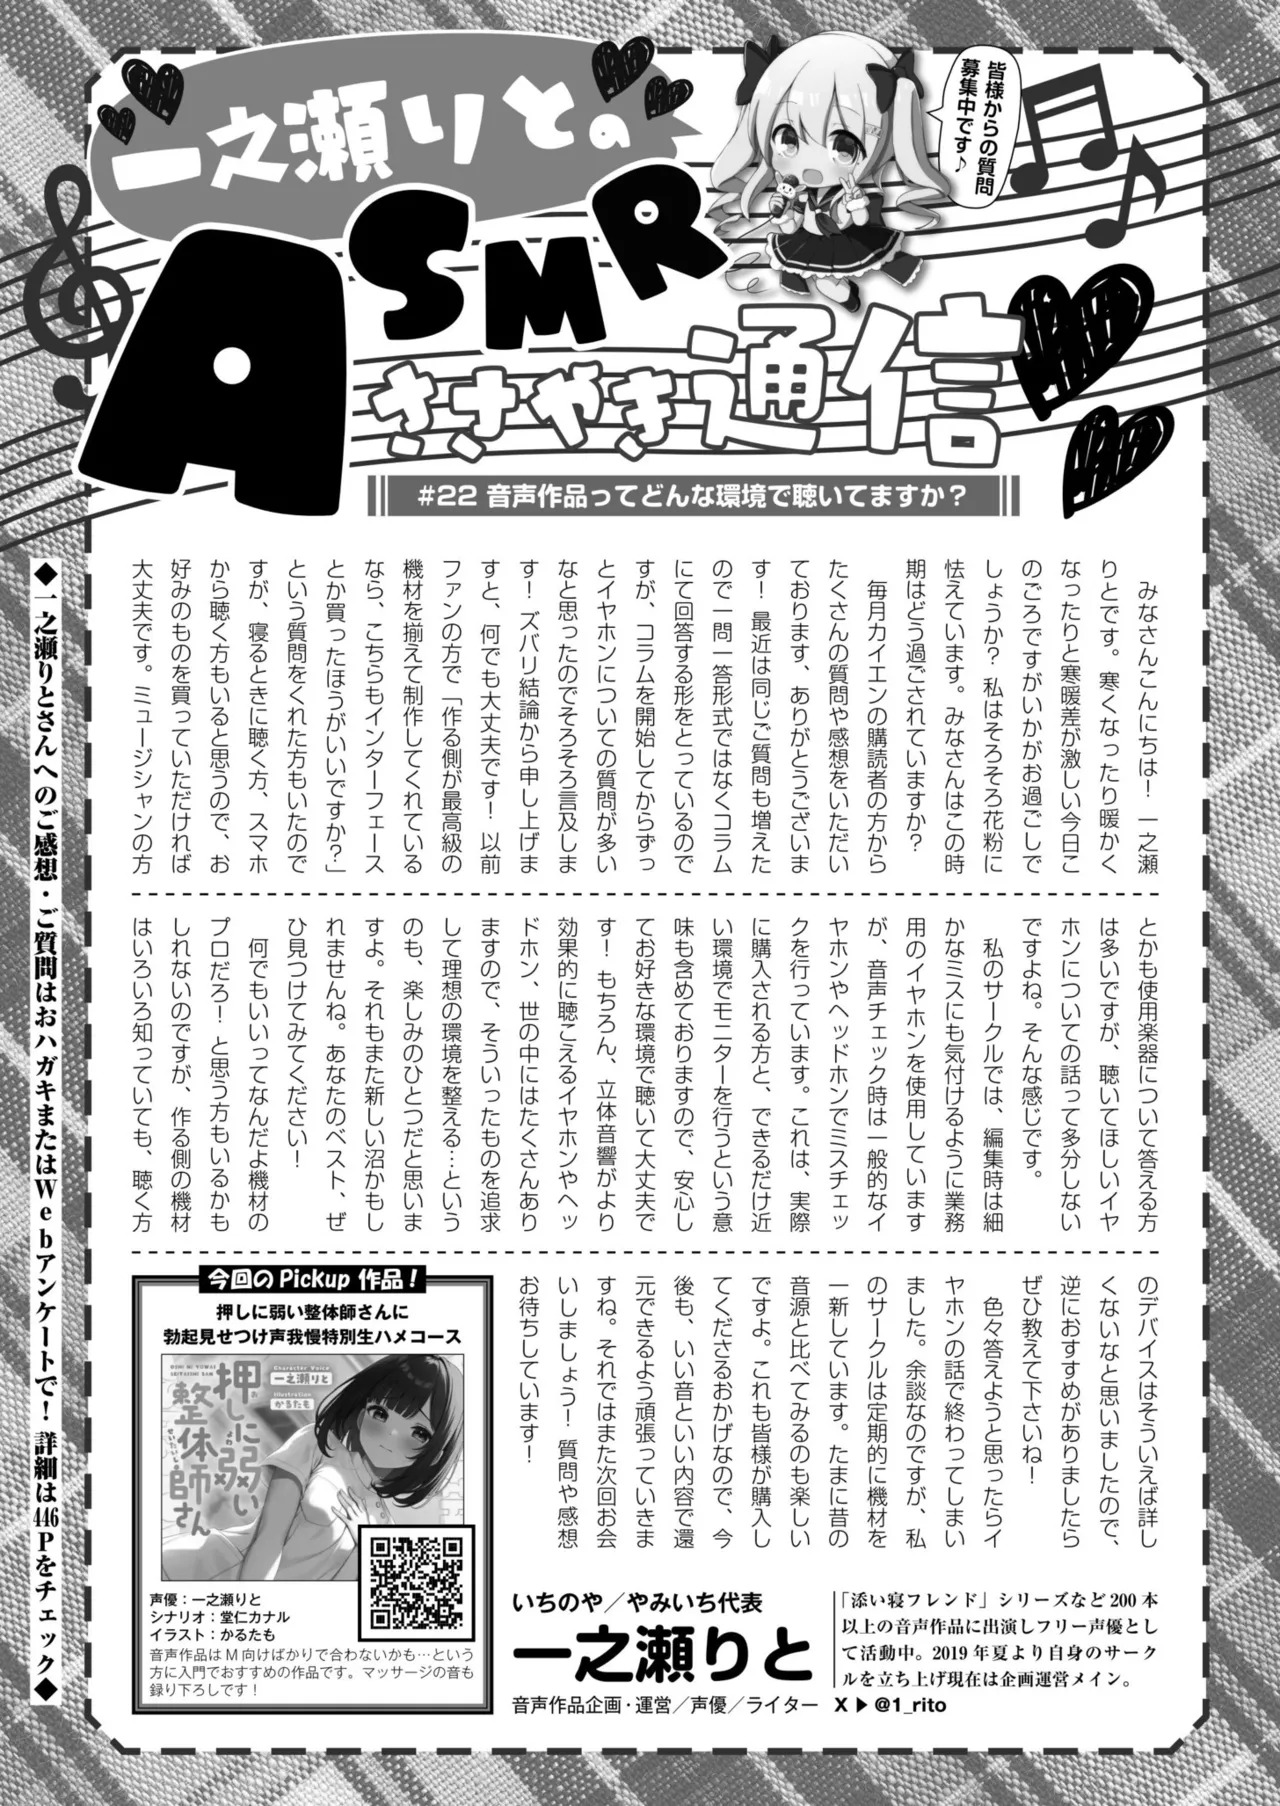 一之瀬りとの
ASMR
ささやき通信
皆様からの質問
募集中です♪
#22 音声作品ってどんな環境で聴いてますか？
みなさんこんにちは！　一之瀬
りとです。寒くなったり暖かく
なったりと寒暖差が激しい今日こ
のごろですがいかがお過ごしで
しょうか？ 私はそろそろ花粉に
怯えています。みなさんはこの時
期はどう過ごされていますか？
毎月カイエンの購読者の方から
たくさんの質問や感想をいただい
ております、ありがとうございま
す！ 最近は同じご質問も増えた
ので一問一答形式ではなくコラム
にて回答する形をとっているので
すが、コラムを開始してからずっ
とイヤホンについての質問が多い
なと思ったのでそろそろ言及しま
す！ ズバリ結論から申し上げま
すと、何でも大丈夫です！ 以前
ファンの方で「作る側が最高級の
機材を揃えて制作してくれている
なら、こちらもインターフェース
とか買ったほうがいいですか？」
という質問をくれた方もいたので
すが、寝るときに聴く方、スマホ
から聴く方もいると思うので、お
好みのものを買っていただければ
大丈夫です。ミュージシャンの方
とかも使用楽器について答える方
は多いですが、聴いてほしいイヤ
ホンについての話って多分しない
ですよね。そんな感じです。
私のサークルでは、編集時は細
かなミスにも気付けるように業務
用のイヤホンを使用しています
が、音声チェック時は一般的なイ
ヤホンやヘッドホンでミスチェッ
クを行っています。これは、実際
に購入される方と、できるだけ近
い環境でモニターを行うという意
味も含めておりますので、安心し
てお好きな環境で聴いて大丈夫で
す！ もちろん、立体音響がより
効果的に聴こえるイヤホンやヘッ
ドホン、世の中にはたくさんあり
ますので、そういったものを追求
して理想の環境を整える…という
のも、楽しみのひとつだと思いま
すよ。それもまた新しい沼かもし
れませんね。あなたのベスト、ぜ
ひ見つけてみてください！
何でもいいってなんだよ機材の
プロだろ！ と思う方もいるかも
しれないのですが、作る側の機材
はいろいろ知っていても、聴く方
のデバイスはそういえば詳し
くないなと思いましたので、
逆におすすめがありましたら
ぜひ教えて下さいね！
色々答えようと思ったらイ
ヤホンの話で終わってしまい
ました。余談なのですが、私
のサークルは定期的に機材を
一新しています。たまに昔の
音源と比べてみるのも楽しい
ですよ。これも皆様が購入し
てくださるおかげなので、今
後も、いい音といい内容で還
元できるよう頑張っていきま
すね。それではまた次回お会
いしましょう！ 質問や感想
お待ちしています！
今回のPickup作品！
押しに弱い整体師さんに
勃起見せつけ声我慢特別生ハメコース
OSHI NI YOWAI
SEITAISHI SAN
押しに弱い
整体師さん
お
よわ
せいたいし
Character Voice
一之瀬りと
Illustration
かるたも
声優：一之瀬りと
シナリオ：堂仁カナル
イラスト：かるたも
音声作品はM向けばかりで合わないかも…という
方に入門でおすすめの作品です。マッサージの音も
録り下ろしです！
いちのや／やみいち代表
一之瀬りと
音声作品企画・運営／声優／ライター
「添い寝フレンド」シリーズなど200本
以上の音声作品に出演しフリー声優とし
て活動中。2019年夏より自身のサーク
ルを立ち上げ現在は企画運営メイン。
X▶@1_rito
◆一之瀬りとさんへのご感想・ご質問はおハガキまたはWebアンケートで！ 詳細は446Pをチェック◆